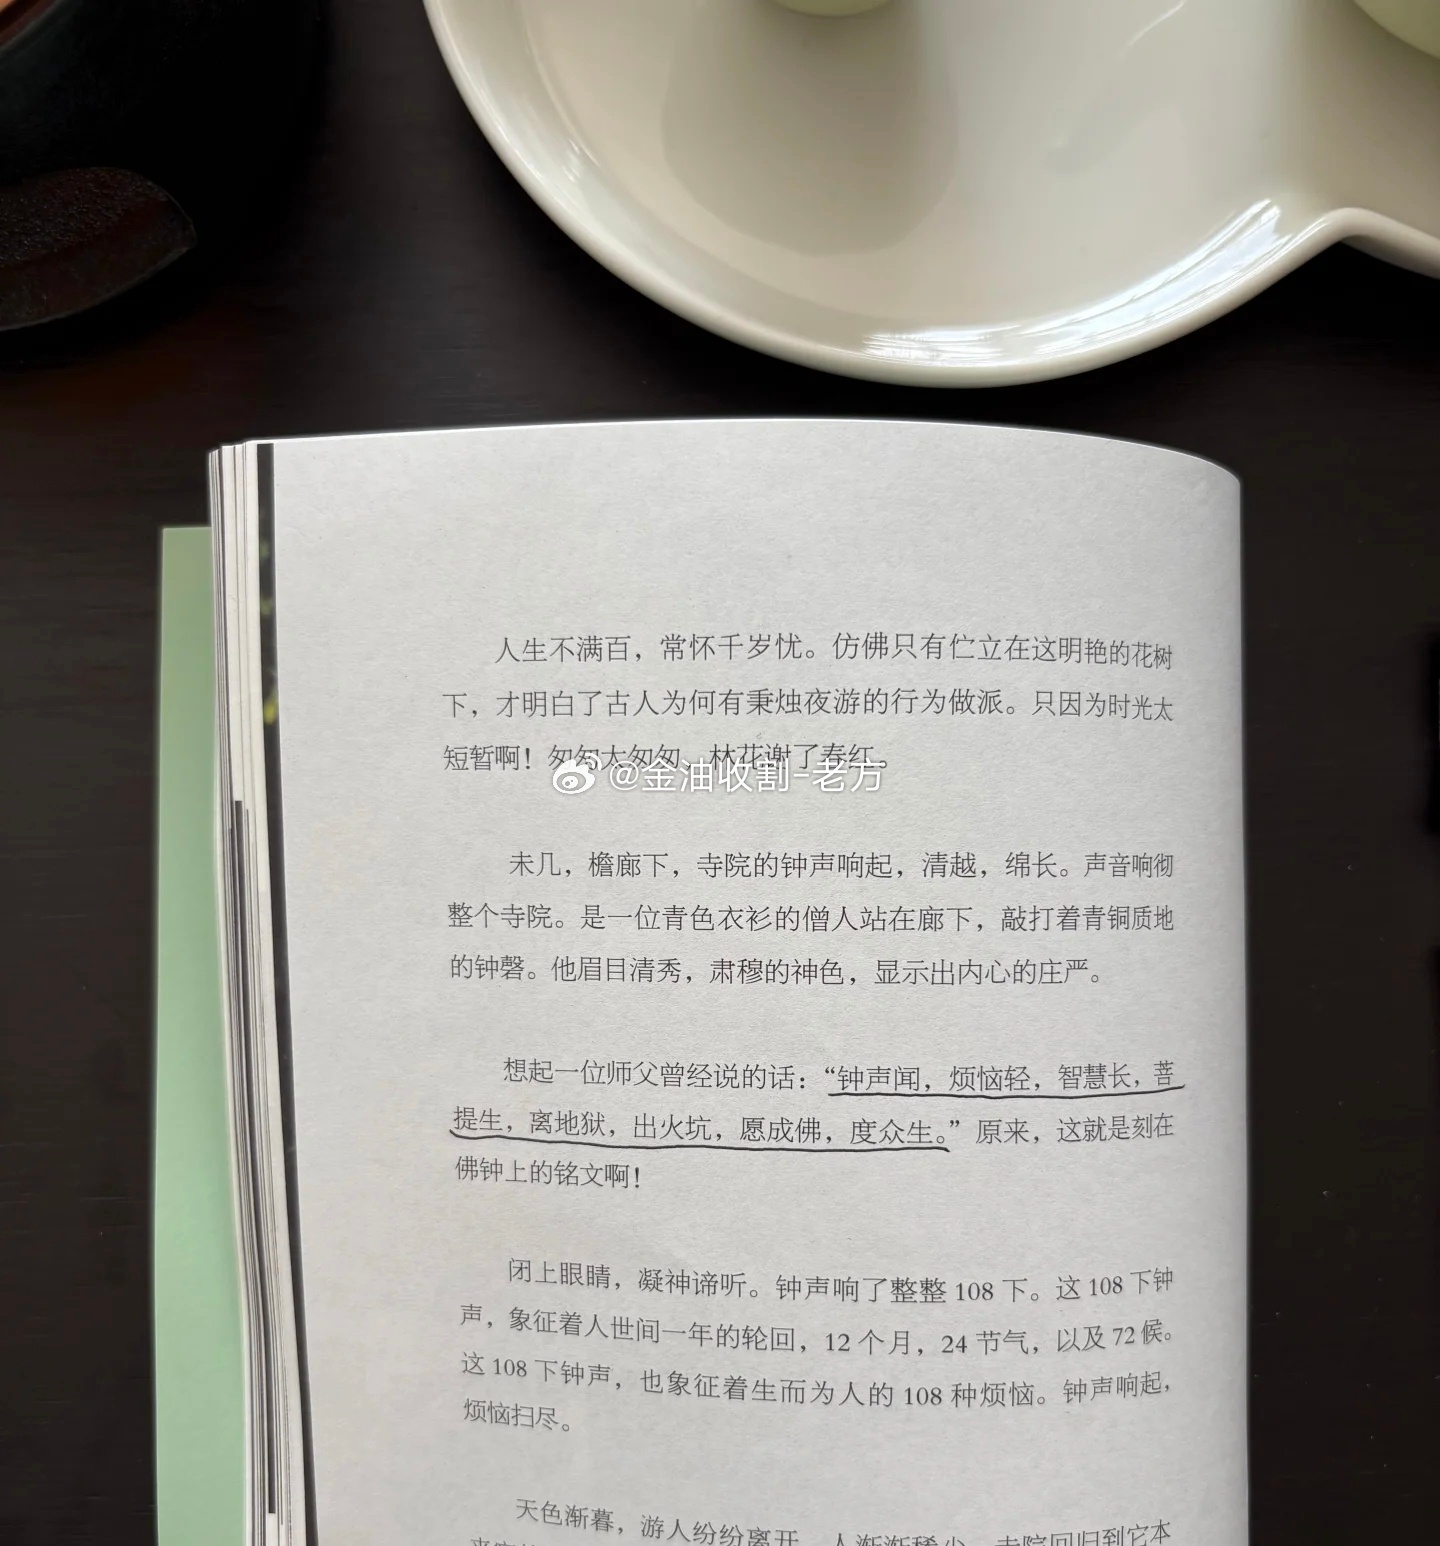 人生不满百，常怀千岁忧。仿佛只有伫立在这明艳的花树
下，才明白了古人为何有秉烛夜游的行为做派。只因为时光太
短暂啊！匆匆太匆匆，林花谢了春红。
@金油收割-老方
未几，檐廊下，寺院的钟声响起，清越，绵长。声音响彻
整个寺院。是一位青色衣衫的僧人站在廊下，敲打着青铜质地
的钟磬。他眉目清秀，肃穆的神色，显示出内心的庄严。
想起一位师父曾经说的话：“钟声闻，烦恼轻，智慧长，菩
提生，离地狱，出火坑，愿成佛，度众生。”原来，这就是刻在
佛钟上的铭文啊！
闭上眼睛，凝神谛听。钟声响了整整 108 下。这 108 下钟
声，象征着人世间一年的轮回，12 个月，24 节气，以及 72 候。
这 108 下钟声，也象征着生而为人的 108 种烦恼。钟声响起，
烦恼扫尽。
天色渐暮，游人纷纷离开，人渐渐稀少，寺院回归到它本